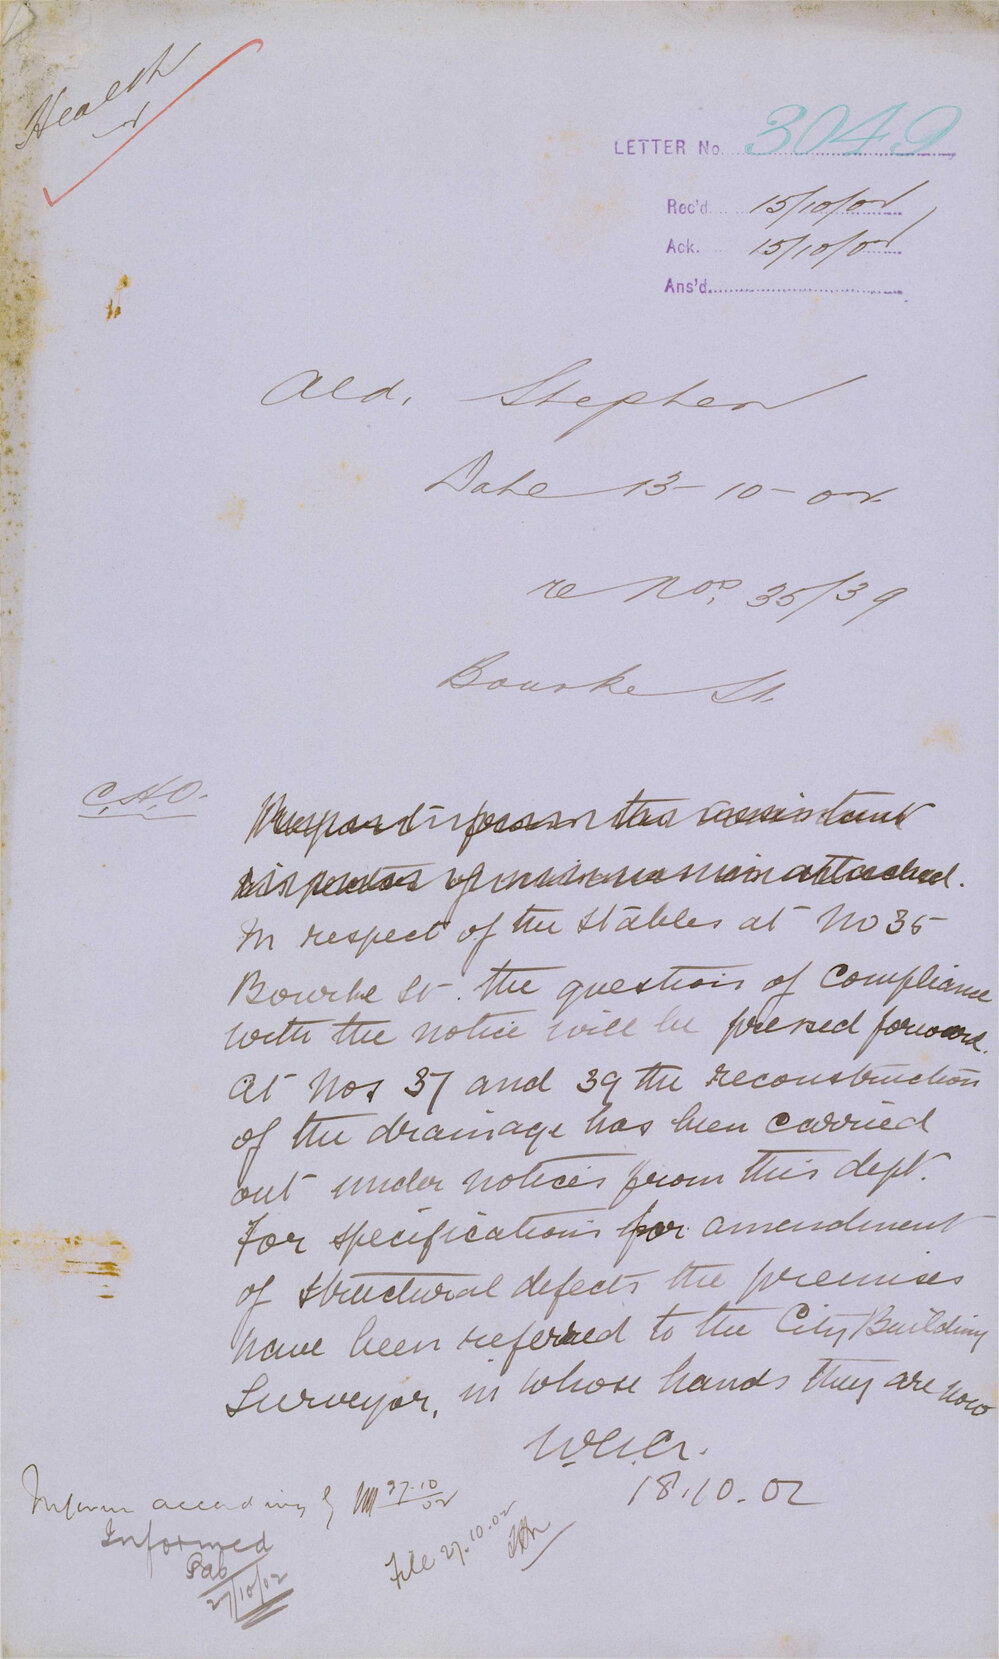 Health
LETTER No. 3049
Rec'd. 15/10/02
Ack. 15/10/02
Ans'd.
Ald. Stephen
Date 13-10-02
re Nos. 35/39
Bourke St.
C.H.O.
attached.
In respect of the stables at No 35
Bourke St. the question of compliance
with the notice will be pressed forward.
At Nos 37 and 39 the reconstruction
of the drainage has been carried
out under notices from this dept.
For specifications for amendment
of structural defects the premises
have been referred to the City Building
Surveyor, in whose hands they are now
18.10.02
Inform accordingly 27.10/02
Informed
27/10/02
File 27.10.02